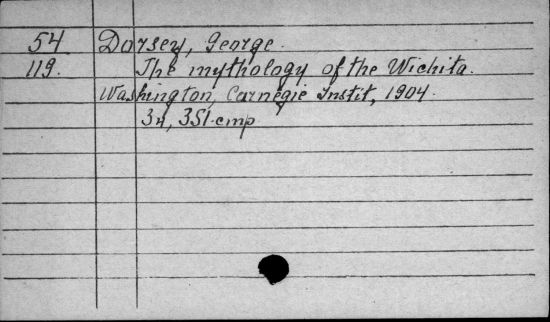 54 Dorsey, George.
119. The mythology of the Wichita.
Washington, Carnegie Instit, 1904.
351.